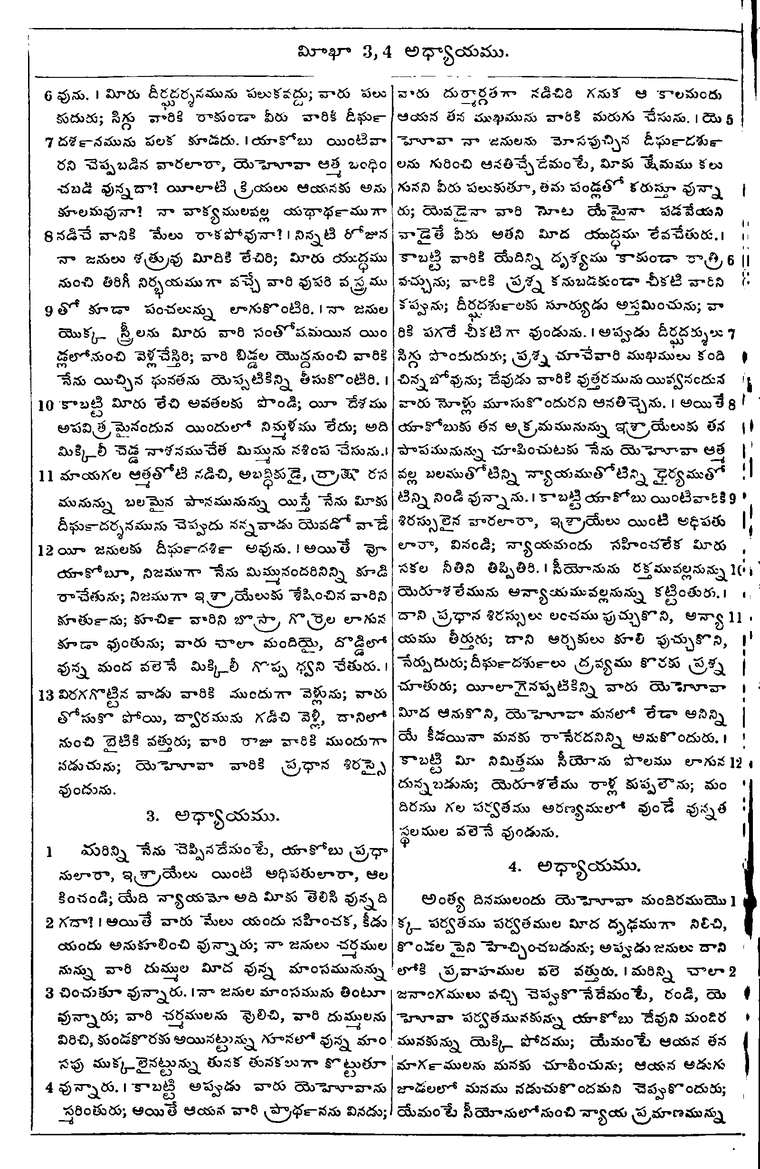 మీఖా 3, 4 అధ్యాయము.
6 వును. । మీరు దీర్ఘదర్శనమును పలుకవద్దు; వారు పలు
కుదురు; సిగ్గు వారికి రాకుండా వీరు వారికి దీర్ఘ
7 దర్శనమును పలక కూడదు. । యాకోబు యింటివా
రని చెప్పబడిన వారలారా, యెహోవా ఆత్మ బంధిం
చబడి వున్నదా? యీలాటి క్రియలు ఆయనకు అను
కూలమవునా? నా వాక్యములవల్ల యథార్థముగా
8 నడిచే వానికి మేలు రాకపోవునా? । నిన్నటి రోజున
నా జనులు శత్రువు మీదికి లేచిరి; మీరు యుద్ధము
నుంచి తిరిగీ నిర్భయముగా వచ్చే వారి వుపరి వస్త్రము
9 తో కూడా పంచలున్ను లాగుకొంటిరి. । నా జనుల
యొక్క స్త్రీలను మీరు వారి సంతోషమయిన యిం
డ్లలోనుంచి వెళ్లచేస్తిరి; వారి బిడ్డల యొద్దనుంచి వారికి
నేను యిచ్చిన ఘనతను యెప్పటికిన్ని తీసుకొంటిరి. ।
10 కాబట్టి మీరు లేచి అవతలకు పొండి; యీ దేశము
అపవిత్రమైనందున యిందులో నిమ్మళము లేదు; అది
మిక్కిలీ చెడ్డ నాశనముచేత మిమ్మును నశింప చేసును. ।
11 మాయగల ఆత్మతోటి నడిచి, అబద్ధికుడై, ద్రాక్షా రస
మునున్ను బలమైన పానమునున్ను యిస్తే నేను మీకు
దీర్ఘదర్శనమును చెప్పుదు నన్నవాడు యెవడో వాడే
12 యీ జనులకు దీర్ఘదర్శి అవును. । అయితే వో
యాకోబూ, నిజముగా నేను మిమ్మునందరినిన్ని కూడి
రాచేతును; నిజముగా ఇశ్రాయేలుకు శేషించిన వారిని
కూర్తును; కూర్చి వారిని బొస్రా గొర్రెల లాగున
కూడా వుంతును; వారు చాలా మందియై, దొడ్డిలో
వున్న మంద వలెనే మిక్కిలీ గొప్ప ధ్వని చేతురు. ।
13 విరగగొట్టిన వాడు వారికి ముందుగా వెళ్లును; వారు
తోసుకొ పోయి, ద్వారమును గడిచి వెళ్లీ, దానిలో
నుంచి బైటికి వత్తురు; వారి రాజు వారికి ముందుగా
నడుచును; యెహోవా వారికి ప్రధాన శిరస్సై
వుందును.
3. అధ్యాయము.
1 మరిన్ని నేను చెప్పినదేమంటే, యాకోబు ప్రధా
నులారా, ఇశ్రాయేలు యింటి అధిపతులారా, ఆల
కించండి; యేది న్యాయమో అది మీకు తెలిసి వున్నది
2 గదా? । అయితే వారు మేలు యందు సహించక, కీడు
యందు అనుకూలించి వున్నారు; నా జనులు చర్మముల
నున్ను వారి దుమ్ముల మీద వున్న మాంసమునున్ను
3 చించుతూ వున్నారు. । నా జనుల మాంసమును తింటూ
వున్నారు; వారి చర్మములను వొలిచి, వారి దుమ్ములను
విరిచి, కుండకొరకు అయినట్టున్ను గూనలో వున్న మాం
సపు ముక్కలైనట్టున్ను తునక తునకలుగా కొట్టుతూ
4 వున్నారు. । కాబట్టి అప్పుడు వారు యెహోవాను
స్మరింతురు; అయితే ఆయన వారి ప్రార్థనను వినడు;
వారు దుర్మార్గతగా నడిచిరి గనుక ఆ కాలమందు
ఆయన తన ముఖమును వారికి మరుగు చేసును. । యె 5
హోవా నా జనులను మోసపుచ్చిన దీర్ఘదర్శు
లను గురించి ఆనతిచ్చేదేమంటే, మీకు క్షేమము కలు
గునని వీరు పలుకుతూ, తమ పండ్లతో కరుస్తూ వున్నా
రు; యెవడైనా వారి నోట యేమైనా పడవేయని
వాడైతే వీరు అతని మీద యుద్ధము లేవచేతురు. ।
కాబట్టి వారికి యేదిన్ని దృశ్యము కాకుండా రాత్రి 6
వచ్చును; వారికి ప్రశ్న కనుబడకుండా చీకటి వారిని
కప్పును; దీర్ఘదర్శులకు సూర్యుడు అస్తమించును; వా
రికి పగలే చీకటిగా వుండును. । అప్పుడు దీర్ఘదర్శులు 7
సిగ్గు పొందుదురు; ప్రశ్న చూచేవారి ముఖములు కంది
చిన్నబోవును; దేవుడు వారికి వుత్తరమును యివ్వనందున
వారు నోళ్లు మూసుకొందురని ఆనతిచ్చెను. । అయితే 8
యాకోబుకు తన అక్రమమునున్ను ఇశ్రాయేలుకు తన
పాపమునున్ను చూపించుటకు నేను యెహోవా ఆత్మ
వల్ల బలముతోటిన్ని న్యాయముతోటిన్ని ధైర్యముతో
టిన్ని నిండి వున్నాను. । కాబట్టి యాకోబు యింటివారికి 9
శిరస్సులైన వారలారా, ఇశ్రాయేలు యింటి అధిపతు
లారా, వినండి; న్యాయమందు సహించలేక మీరు
సకల నీతిని తిప్పితిరి. । సీయోనును రక్తమువల్లనున్ను 10
యెరూశలేమును అన్యాయమువల్లనున్ను కట్టింతురు. ।
దాని ప్రధాన శిరస్సులు లంచము పుచ్చుకొని, అన్యా 11
యము తీర్తురు; దాని అర్చకులు కూలి పుచ్చుకొని,
నేర్పుదురు; దీర్ఘదర్శులు ద్రవ్యము కొరకు ప్రశ్న
చూతురు; యీలాగైనప్పటికిన్ని వారు యెహోవా
మీద ఆనుకొని, యెహోవా మనలో లేడా అనిన్ని
యే కీడయినా మనకు రానేరదనిన్ని అనుకొందురు. ।
కాబట్టి మీ నిమిత్తము సీయోను పొలము లాగున 12
దున్నబడును; యెరూశలేము రాళ్ల కుప్పలౌను; మం
దిరము గల పర్వతము అరణ్యములో వుండే వున్నత
స్థలముల వలెనే వుండును.
4. అధ్యాయము.
అంత్య దినములందు యెహోవా మందిరముయొ 1
క్క పర్వతము పర్వతముల మీద దృఢముగా నిలిచి,
కొండల పైని హెచ్చించబడును; అప్పుడు జనులు దాని
లోకి ప్రవాహముల వలె వత్తురు. । మరిన్ని చాలా 2
జనాంగములు వచ్చి చెప్పుకొనేదేమంటే, రండి, యె
హోవా పర్వతమునకున్ను యాకోబు దేవుని మందిర
మునకున్ను యెక్కి పోదము; యేమంటే ఆయన తన
మార్గములను మనకు చూపించును; ఆయన అడుగు
జాడలలో మనము నడుచుకొందమని చెప్పుకొందురు;
యేమంటే సీయోనులోనుంచి న్యాయ ప్రమాణమున్ను